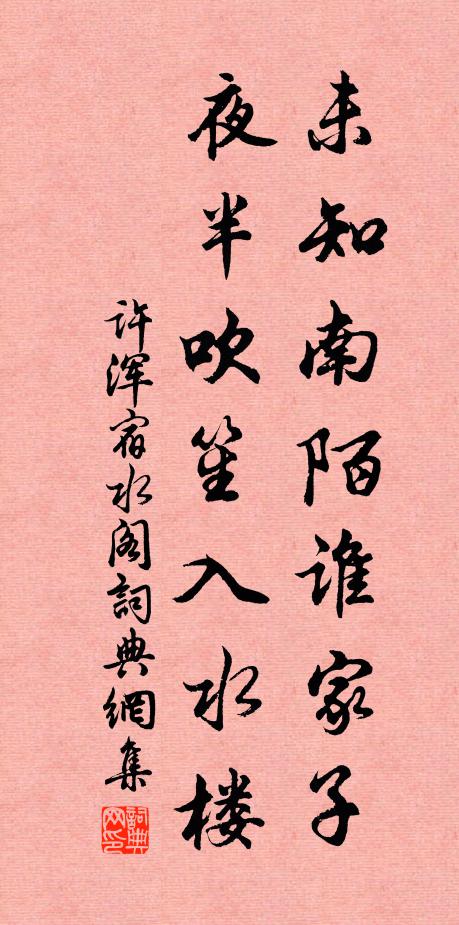 未知南陌谁家子
夜半吹笙入水楼
许浑宿水阁詞典網集
詞典网印